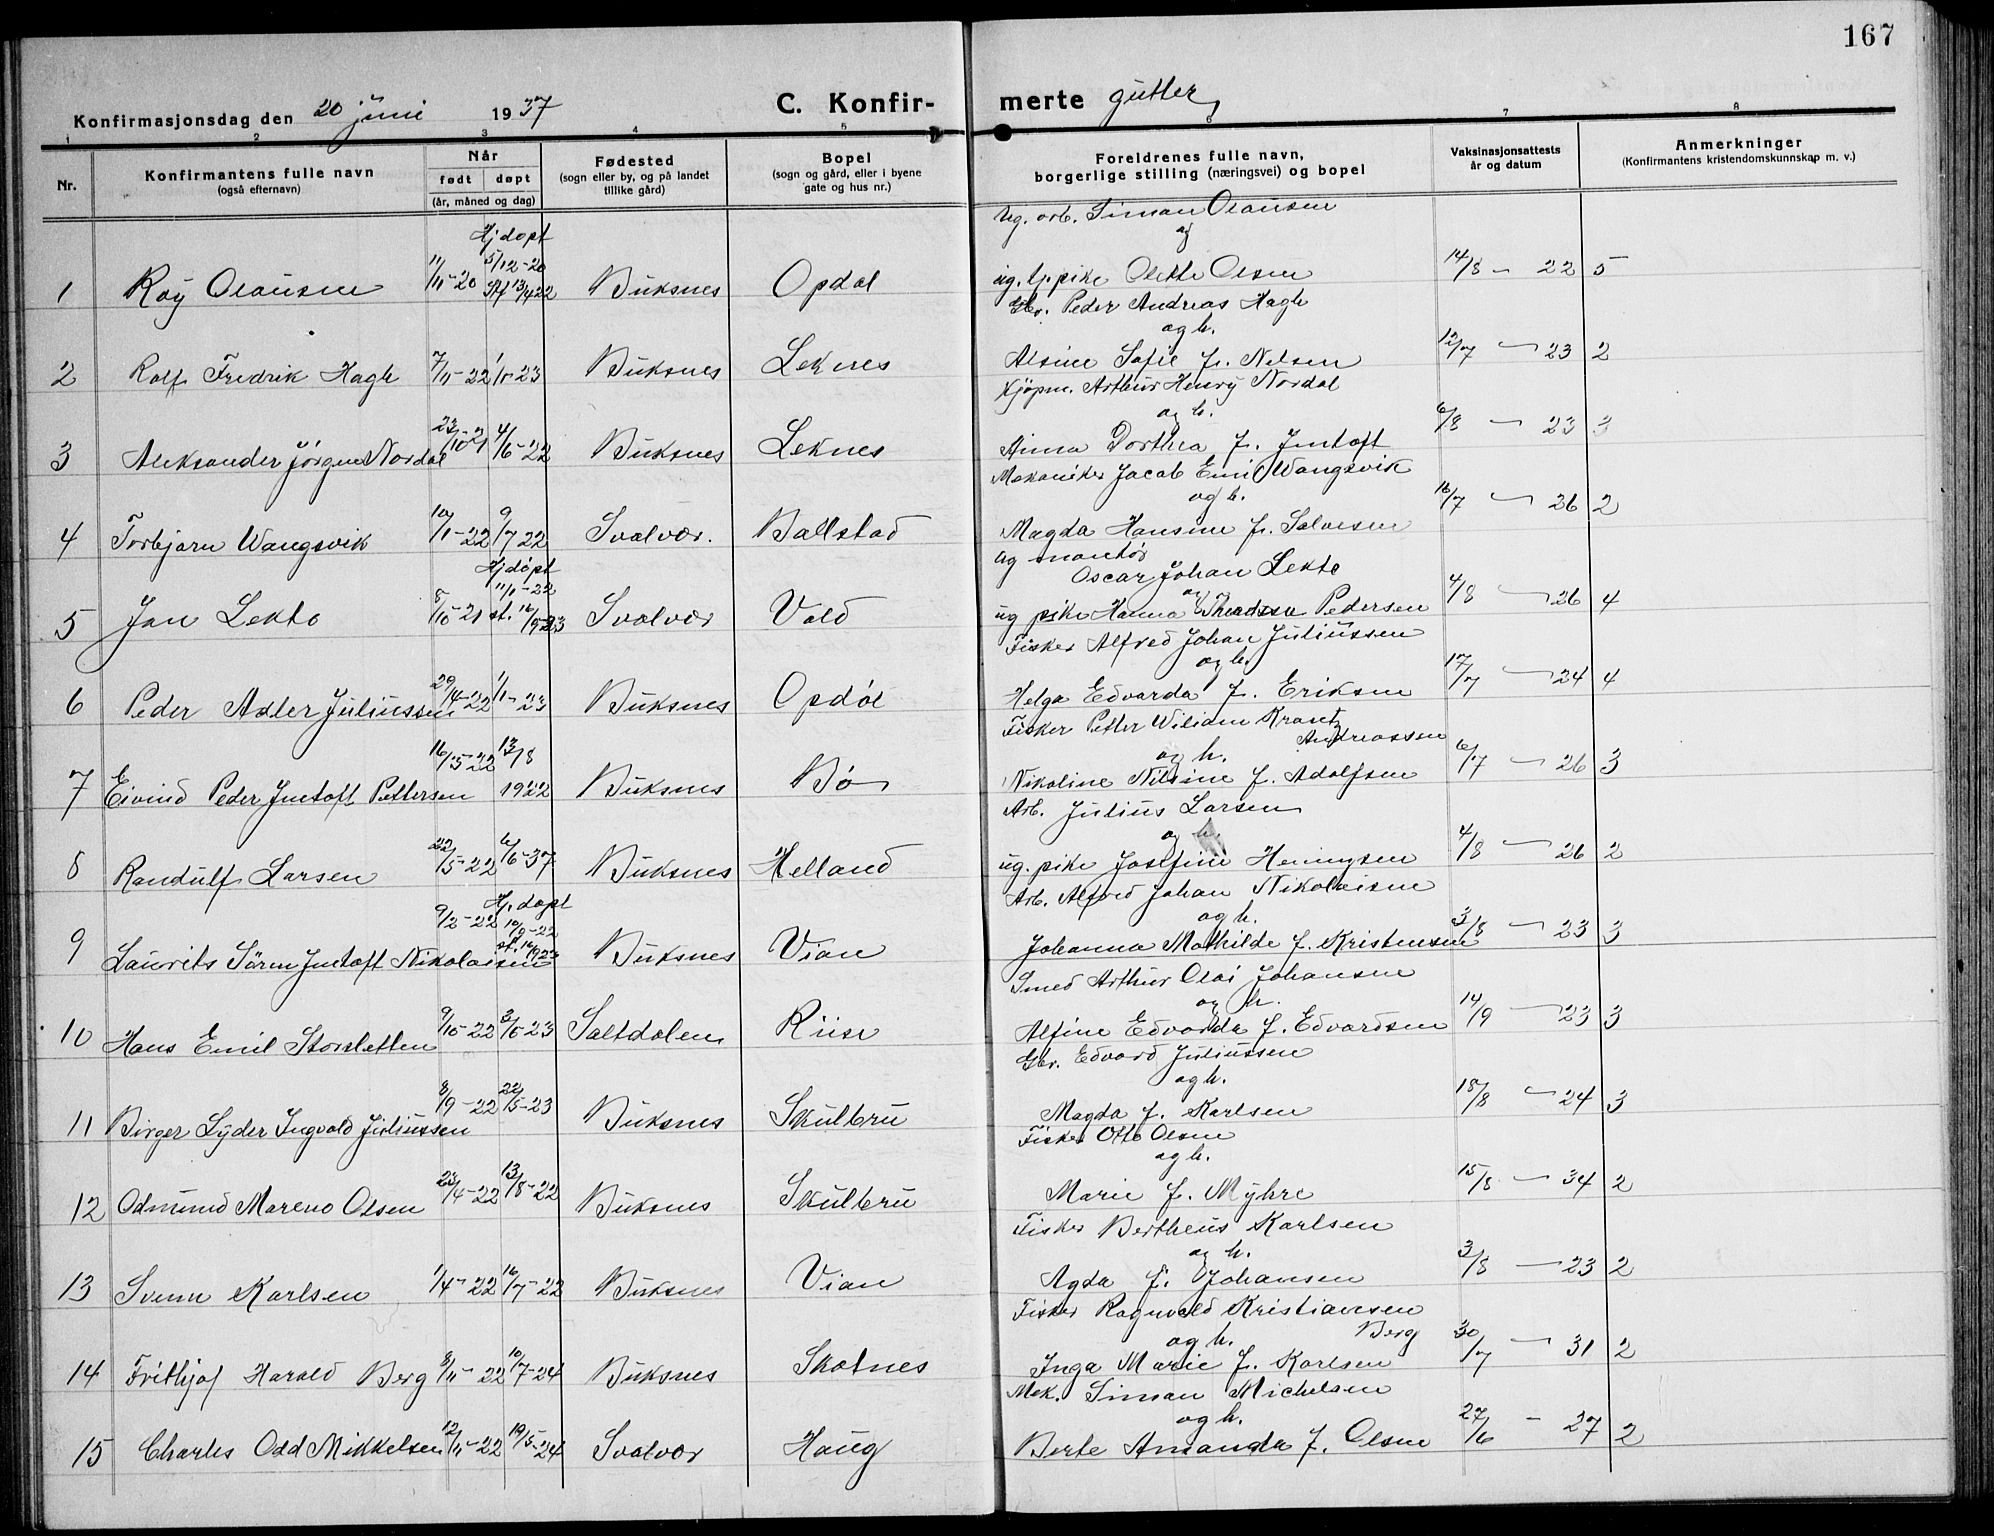 167
Konfirmasjonsdag den 20 juni 1937
C. Konfirmerte gutter,
1 2 3 4 5 6 7 8
Nr. Konfirmantens fulle navn (også efternavn) Når født døpt (år, måned og dag) Fødested (sogn eller by, og på landet tillike gård) Bopel (sogn og gård, eller i byene gate og hus nr.) Foreldrenes fulle navn, borgerlige stilling (næringsvei) og bopel Vaksinasjonsattests år og datum Anmerkninger (Konfirmantens kristendomskunnskap m. v.)
Ug. arb. Simon Olausen
Hj døpt og
1 Roy Olausen 11/11-20 5/12-20 St 13/4 22 Buksnes Opdal ug. pike Olette Olsen 14/8 - 22 5
Gbr. Peder Andreas Hagh
og h.
2 Rolf Fredrik Hagh 7/11-22 1/1-23 Buksnes Leknes Alsine Sofie f. Nilsen 12/7 - 23 2
Kjøpm. Arthur Henry Nordal
og h.
3 Aleksander Jörgen Nordal 23/10-21 4/6-22 Buksnes Leknes Anna Dorthea f. Jentoft 6/8 - 23 3
Mekaniker Jacob Emil Wangsvik
og h.
4 Torbjørn Wangsvik 10/1-22 9/7 22 Svolvær. Ballstad Magda Hansine f. Salvesen 16/7 - 26 2
ug montör
Oscar Johan Lekto
Hj döpt 11/1-22 og
5 Jan Lekto 8/10-21 st. 16/9 23 Svolvær Vold ug pike Hanna Pedersen 4/8 - 26 4
Fisker Alfred Johan Juliussen
og h.
6 Peder Adler Juliussen 29/4-22 1/1-23 Buksnes Opdøl Helga Edvarda f. Eriksen 17/7 - 24 4
Fisker Petter Wiliam Krantz
Andreassen
og h.
7 Eivind Peder Jentoft Pettersen 16/5-22 13/8 1922 Buksnes Bø Nikoline Nilsine f. Adolfsen 6/7 - 26 3
Arb. Julius Larsen
og
8 Randulf Larsen 22/5-22 6/6-37 Buksnes Helland ug. pike Josefine Heningsen 4/8 - 26 2
Arb. Alfred Johan Nikolaisen
Hj. døpt og h.
9 Laurits Sören Jentoft Nikolaisen 9/2-22 10/9-22 st. 16/9 23 Buksnes Vian Johanna Mathilde f. Kristensen 3/8 - 23 3
Smed Arthur Olai Johansen
og h.
10 Hans Emil Storsletten 9/10-22 3/6-23 Saltdalen Riise Alfine Edvarda f. Edvardsen 14/9 - 23 3
Gbr. Edvard Juliussen
og h.
11 Birger Lyder Ingvald Juliussen 8/9-22 22/5-23 Buksnes Skulbru Magda f. Karlsen 18/8 - 24 3
Fisker Otto Olsen
og h.
12 Odmund Mareno Olsen 23/4-22 13/8-22 Buksnes Skulbru Marie f. Myhre 15/8 - 34 2
Fisker Bertheus Karlsen
og h.
13 Svenn Karlsen 1/4-22 16/7-22 Buksnes Vian Agda f. Johansen 3/8 - 23 2
Fisker Ragnvald Kristiansen
Berg
og h.
14 Frithjof Harald Berg 8/11-22 10/7-24 Buksnes Skotnes Inga Marie f. Karlsen 30/7 - 31 2
Mek. Simon Michelsen
og h.
15 Charles Odd Mikkelsen 12/11-22 19/5-24 Svolvær Haug Berte Amanda f. Olsen 27/6 - 27 2